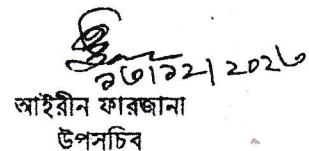 ১৩/১২/২০২৩
আইরীন ফারজানা
উপসচিব